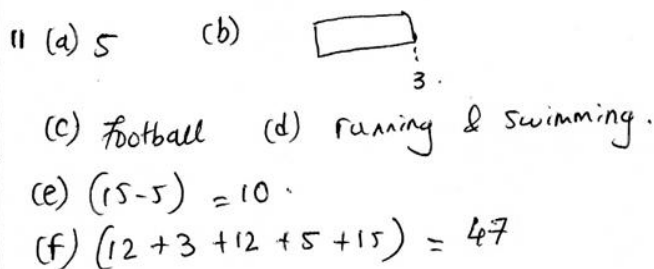 11 (a) 5 (b)
3.
(c) Football (d) running & swimming.
(e) (15-5) = 10.
(f) (12 + 3 + 12 + 5 + 15) = 47